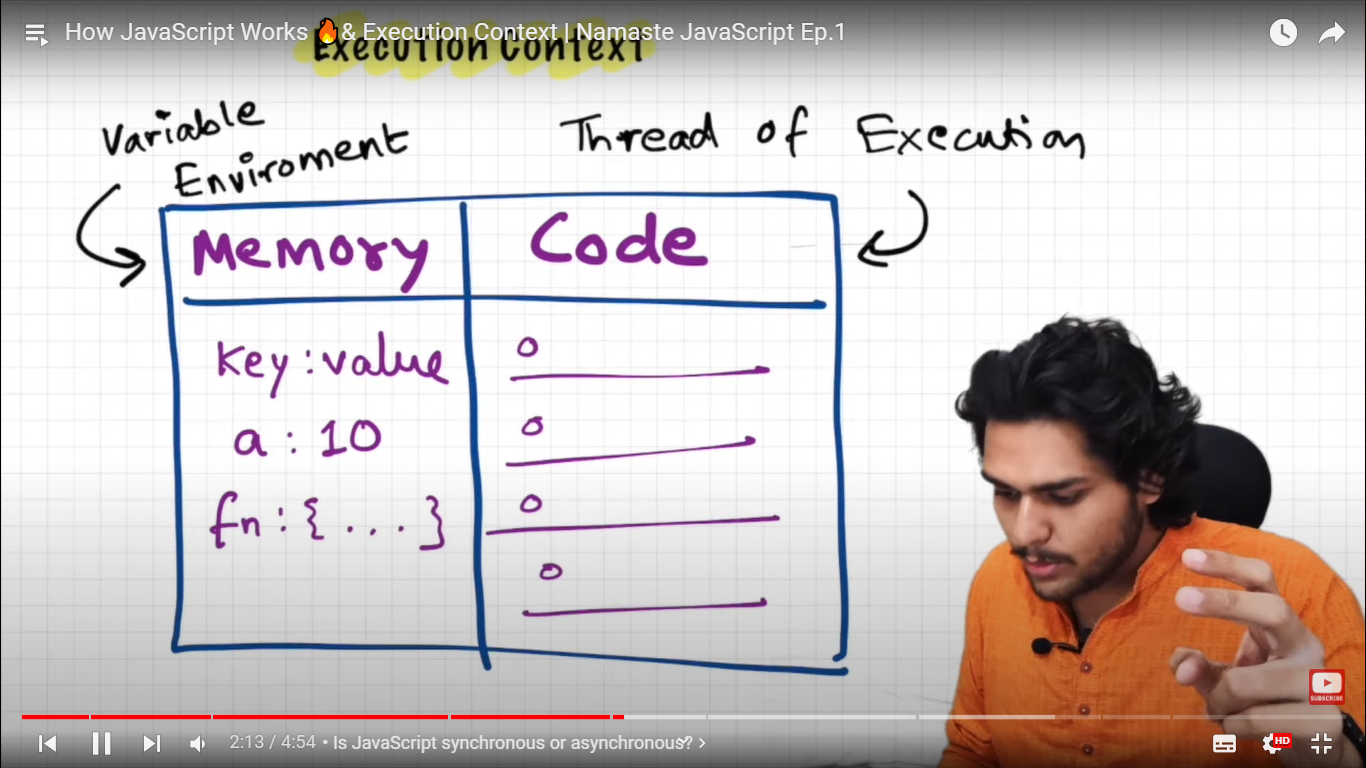 How JavaScript Works 🔥 & Execution Context | Namaste JavaScript Ep.1
Execution Context
Variable
Enviroment
Thread of Execution
Memory
Code
key : value
a : 10
fn : { ... }
SUBSCRIBE
2:13 / 4:54 • Is JavaScript synchronous or asynchronous?
HD